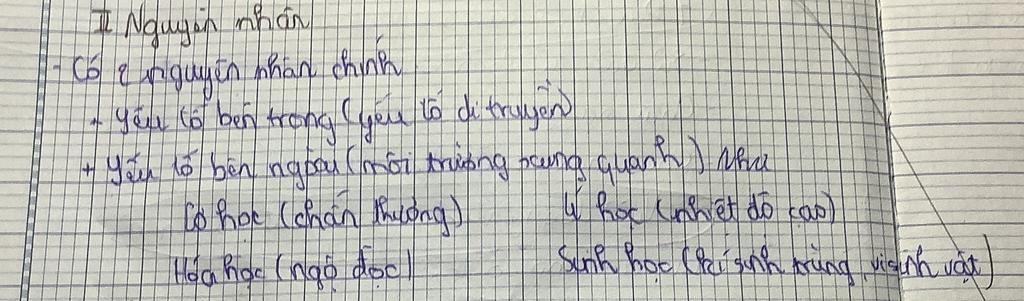 II Nguyên nhân
- Có 2 nguyên nhân chính
+ yếu tố bên trong (yếu tố di truyền)
+ yếu tố bên ngoài (môi trường xung quanh) như
Cơ học (chấn thương) Lý học (nhiệt độ cao)
Hóa học (ngộ độc) Sinh học (kí sinh trùng, vi sinh vật)